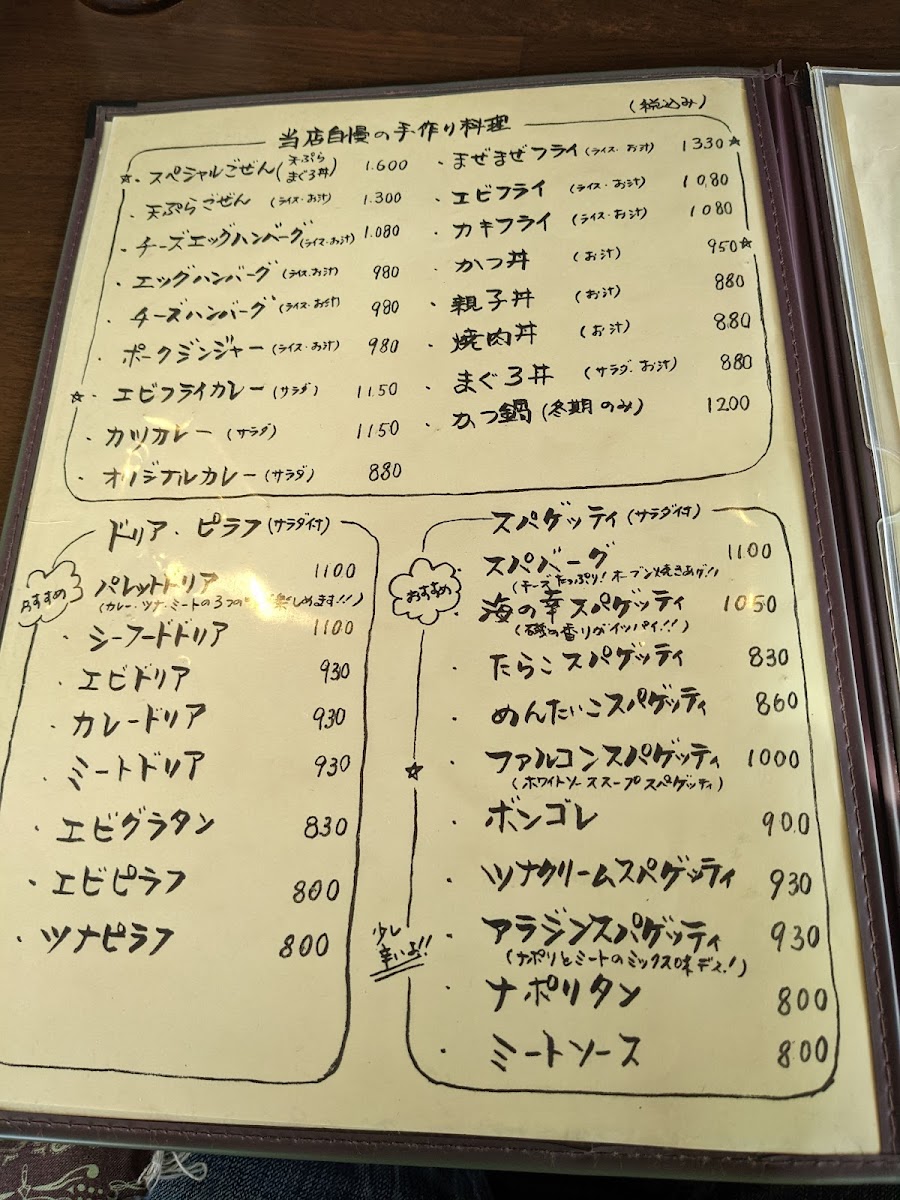 (税込み)
当店自慢の手作り料理
☆・スペシャルごぜん(天ぷら まぐろ丼) 1.600
・天ぷらごぜん (ライス・お汁) 1.300
・チーズエッグハンバーグ(ライス・お汁) 1.080
・エッグハンバーグ(ライス・お汁) 980
・チーズハンバーグ(ライス・お汁) 980
・ポークジンジャー(ライス・お汁) 980
☆・エビフライカレー(サラダ) 1150
・カツカレー(サラダ) 1150
・オリジナルカレー(サラダ) 880
・まぜまぜフライ(ライス・お汁) 1330☆
・エビフライ (ライス・お汁) 1080
・カキフライ (ライス・お汁) 1080
・かつ丼 (お汁) 950☆
・親子丼 (お汁) 880
・焼肉丼 (お汁) 880
・まぐろ丼 (サラダ・お汁) 880
・かつ鍋(冬期のみ) 1200
ドリア・ピラフ(サラダ付)
おすすめ
パレットドリア 1100
(カレー・ツナ・ミートの3つの 楽しめます!!)
・シーフードドリア 1100
・エビドリア 930
・カレードリア 930
・ミートドリア 930
・エビグラタン 830
・エビピラフ 800
・ツナピラフ 800
スパゲッティ(サラダ付)
おすすめ
スパバーグ 1100
(チーズたっぷり!オーブン焼きあげ!!)
・海の幸スパゲッティ 1050
(磯の香りがイッパイ!!)
・たらこスパゲッティ 830
・めんたいこスパゲッティ 860
☆・ファルコンスパゲッティ 1000
(ホワイトソーススープスパゲッティ)
・ボンゴレ 900
・ツナクリームスパゲッティ 930
少し辛いよ!!
・アラジンスパゲッティ 930
(ナポリとミートのミックス味デス!)
・ナポリタン 800
・ミートソース 800